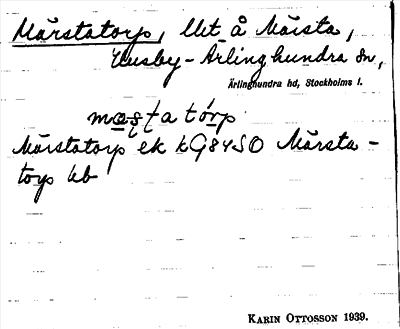 Märstatorp, Ut å Märsta,
Husby-Ärlinghundra sn,
Ärlinghundra hd, Stockholms l.
ma̤ṣṭa tórp
Märstatorp ek kG84SO Märsta-
torp kb
KARIN OTTOSSON 1939.